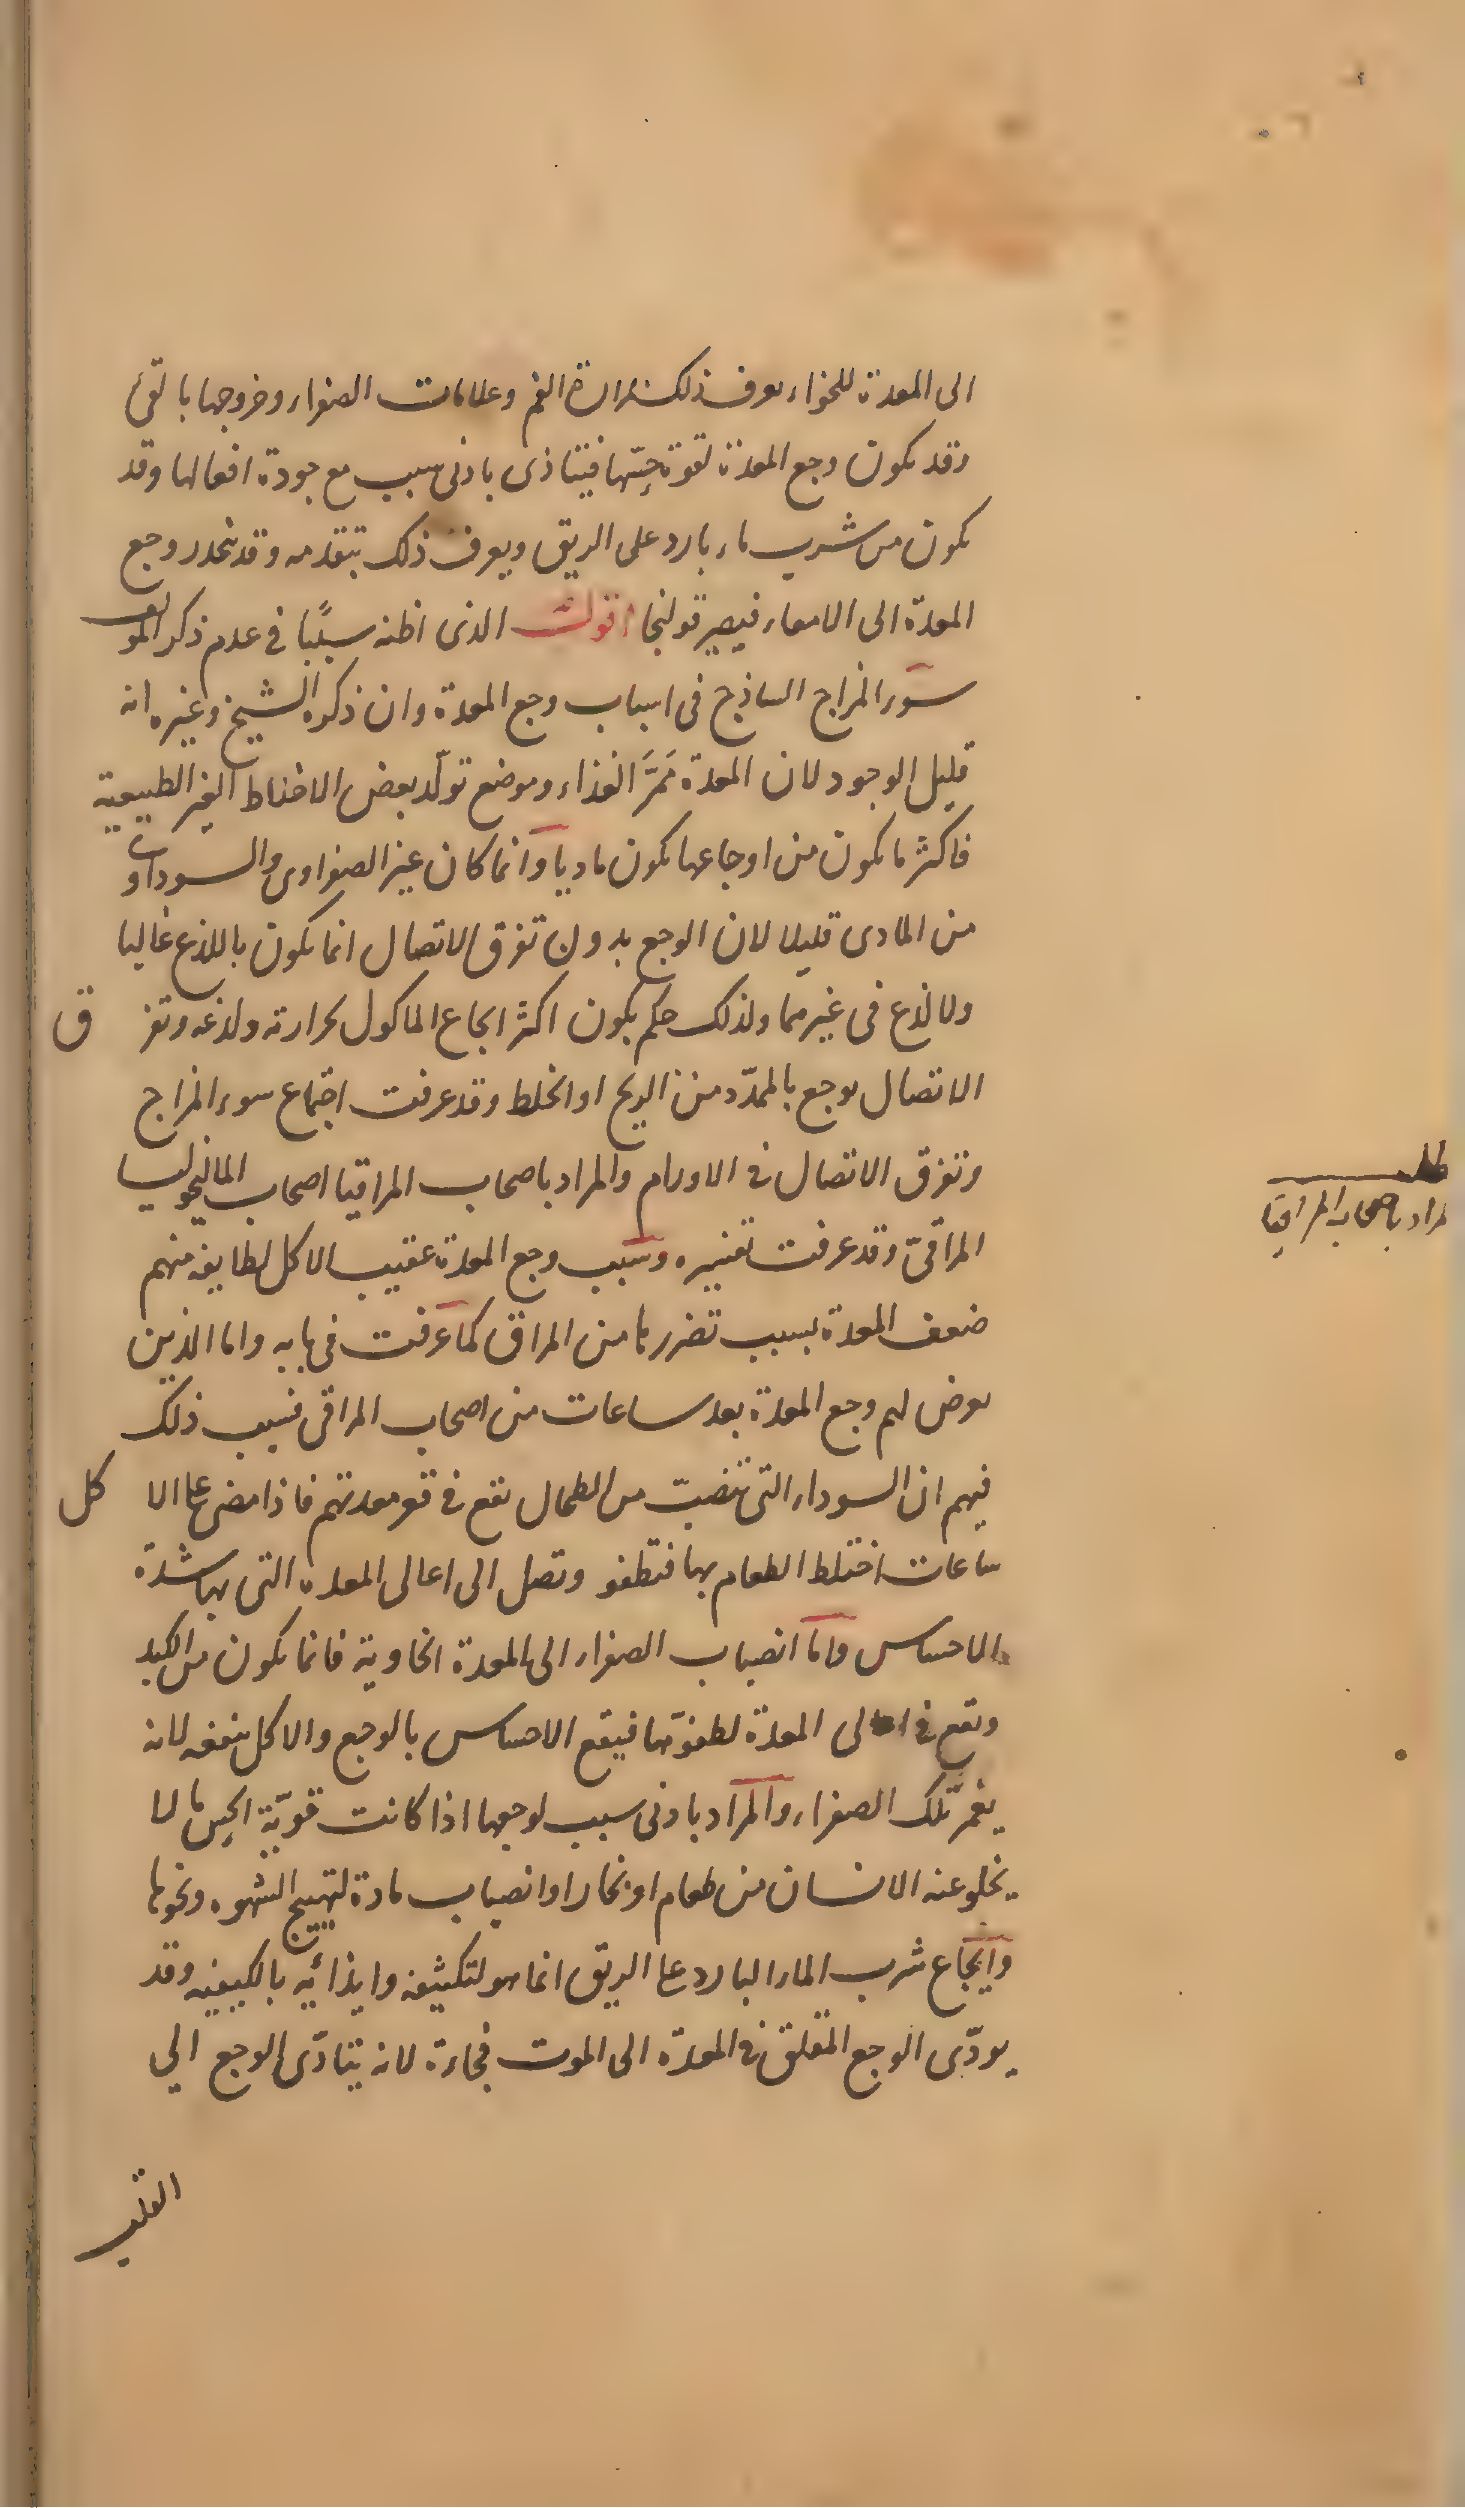 الى المعدة للخواء يعرف ذلك بمرارة الفم وعلامات الصفراء وخروجها بالقئ
وقد يكون وجع المعدة لقوة حِسّها فيتاذى بادنى سبب مع جودة افعالها وقد
يكون من شرب ماء بارد على الريق ويعرف ذلك بتقدمه وقد ينحدر وجع
المعدة الى الامعاء فيصير قولنجا اقول الذى اظنه سببًا فى عدم ذكر المولف
سوء المزاج الساذج فى اسباب وجع المعدة وان ذكره الشيخ وغيره انه
قليل الوجود لان المعدة مَمَرَّ الغذاء وموضع تولّد بعض الاخلاط الغير الطبيعية
فاكثر ما يكون من اوجاعها يكون ماديا وانما كان غير الصفراوى والسوداوى
من المادى قليلا لان الوجع بدون تفرق الاتصال انما يكون باللذع غالبا
ولا لذع فى غيرهما ولذلك حكم بكون اكثر ايجاع الماكول لحرارته ولذعه وتفر ق
الاتصال يوجع بالممدّد من الريح او الخلط وقد عرفت اجتماع سوء المزاج
وتفرق الاتصال فى الاورام والمراد باصحاب المراقيا اصحاب الماليخوليا
المراقىّ وقد عرفت تفسيره وسبب وجع المعدة عقيب الاكل لطايفه منهم
ضعف المعدة بسبب تضررها من المراق كما عرفت فى بابه واما الذين
يعرض لهم وجع المعدة بعد ساعات من اصحاب المراقى فسبب ذلك
فيهم ان السوداء التى تنصبّ من الطحال تقع فى قعر معدتهم فاذا مضى على الا كل
ساعات اختلط الطعام بها فتطفو وتصل الى اعالى المعده التى بها شدة
الاحساس واما انصباب الصفراء الى المعدة الخاوية فانما يكون من الكبد
وتقع فى اعالى المعدة لطفوّها فيقع الاحساس بالوجع والاكل ينفعه لانه
يغمر تلك الصفراء والمراد بادنى سبب لوجعها اذا كانت قويّة الحِس ما لا
يخلو عنه الانسان من طعام او بخار او انصباب مادة لتهييج الشهوه ونحوها
وايجاع شرب الماء البارد على الريق انما هو لتكثيفه وايذائيه بالكيفيه وقد
يودّى الوجع المقلق فى المعدة الى الموت فجاءة لانه يتادّى الوجع الى
القلب
مراد باصحاب المراقيا